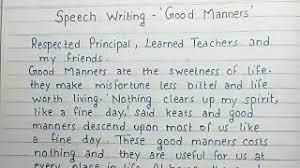 Speech Writing - 'Good Manners'
Respected Principal, Learned Teachers and
my friends.
Good Manners are the sweetness of life.
they make misfortune less bittel and life
worth living. 'Nothing clears up my spirit,
like a fine day,' said keats and good
manners descend upon most of us like
a fine day. These good manners costs
nothing and they are useful to us at
every place in life.